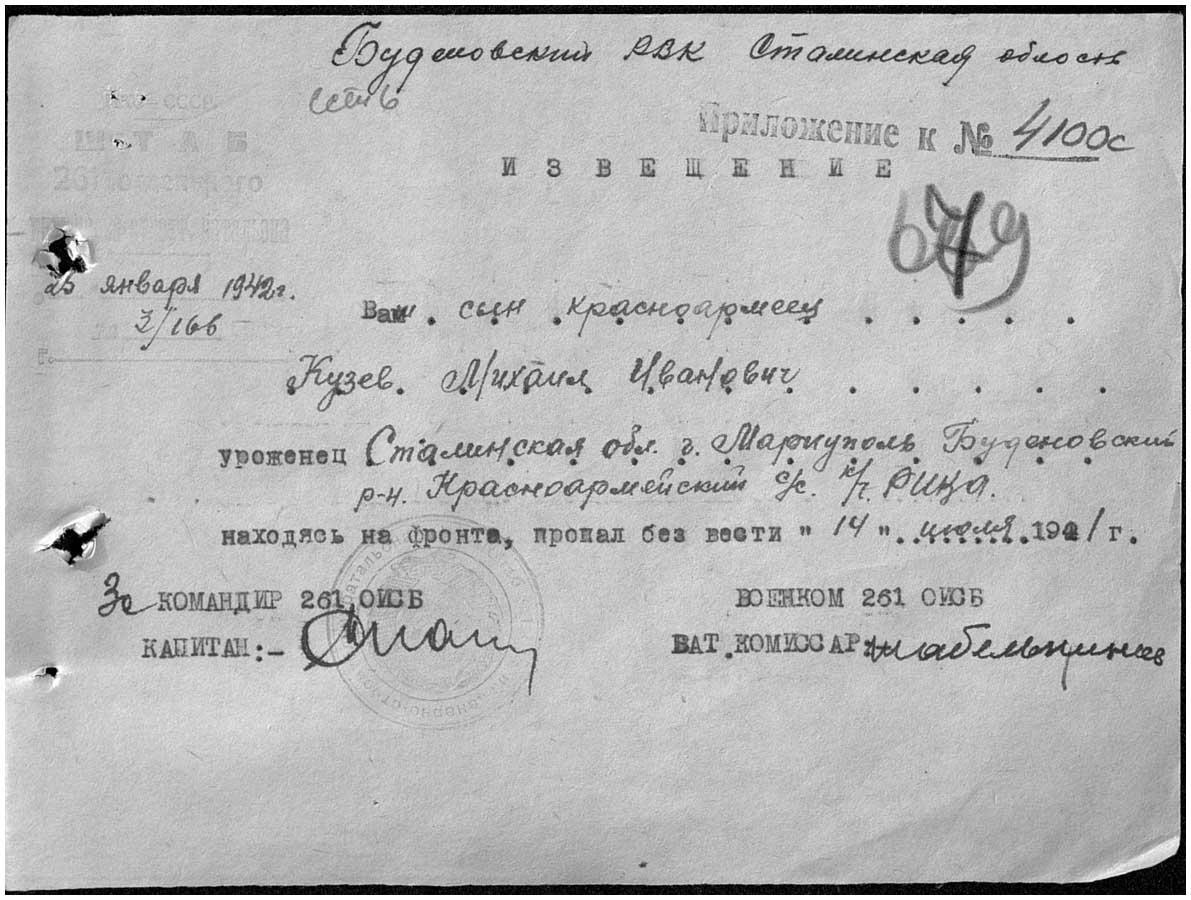 Буденовский РВК Сталинская область
Приложение к № 4100с
НКО-СССР
ШТАБ
ИЗВЕЩЕНИЕ
679
25 января 1942 г.
3/166
Ваш сын красноармеец
Кузев Михаил Иванович
уроженец Сталинская обл. г. Мариуполь Буденовский
р-н. Красноармейский с/с.
находясь на фронте, пропал без вести "14" июля 1941 г.
За КОМАНДИР 261 ОИСБ
ВОЕНКОМ 261 ОИСБ
КАПИТАН:-
БАТ.КОМИССАР: